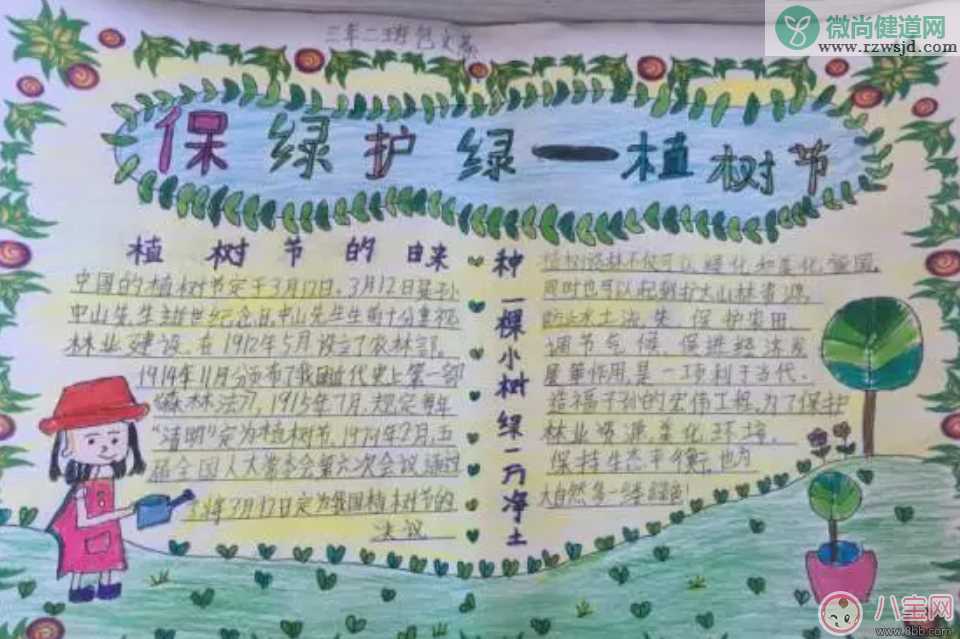 微尚健道网
www.rzwsjd.com
三年二班
保绿护绿一植树节
植树节的由来
中国的植树节定于3月12日。3月12日是孙
中山先生逝世纪念日,中山先生生前十分重视
林业建设。在1912年5月设立了农林部。
1914年11月公布了我国近代史上第一部
《森林法》,1915年7月,规定每年
“清明”定为植树节,1979年2月,五
届全国人大常委会第六次会议通过
将3月12日定为我国植树节的
决议
种一棵小树绿一方净土
植树造林不仅可以绿化和美化
同时也可以起到扩大山林资源、
防止水土流失、保护农田、
调节气候、促进经济发
展等作用,是一项利于当代、
造福子孙的宏伟工程。为了保护
林业资源,美化环境,
保持生态平衡,也为
大自然多一些绿色!
八宝网
www.8bb.com